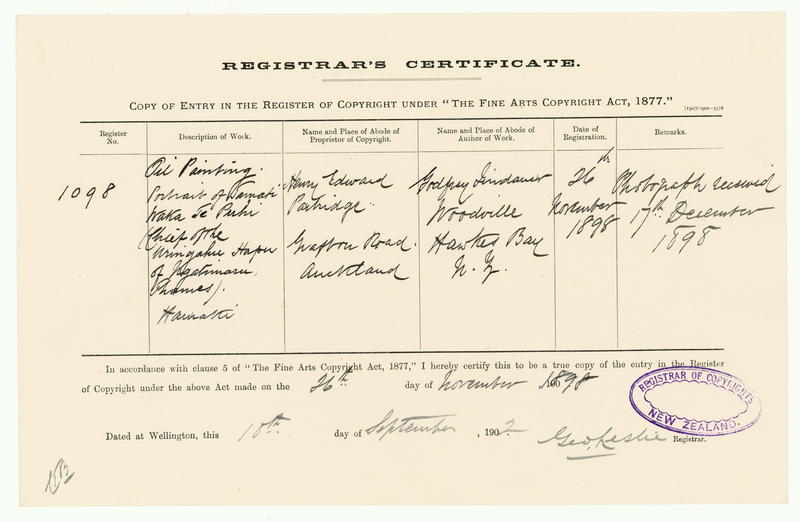 REGISTRAR'S CERTIFICATE.
COPY OF ENTRY IN THE REGISTER OF COPYRIGHT UNDER "THE FINE ARTS COPYRIGHT ACT, 1877."
Register No.
Description of Work.
Name and Place of Abode of Proprietor of Copyright.
Name and Place of Abode of Author of Work.
Date of Registration.
Remarks.
1098
Oil Painting.
Portrait of Tamati
Waka Te Puhi
(Chief of the
Uringahu Hapu
of Ngatimaru,
Thames).
Hauraki
Henry Edward
Partridge
Grafton Road.
Auckland
Godfrey Lindauer
Woodville
Hawkes Bay
N. Z.
26th
November
1898
Photograph received
17th December
1898
In accordance with clause 5 of "The Fine Arts Copyright Act, 1877," I hereby certify this to be a true copy of the entry in the Register
of Copyright under the above Act made on the 26th day of November 1898
Dated at Wellington, this 10th day of September, 1902.
Geo. Leslie Registrar.
REGISTRAR OF COPYRIGHTS
NEW ZEALAND.